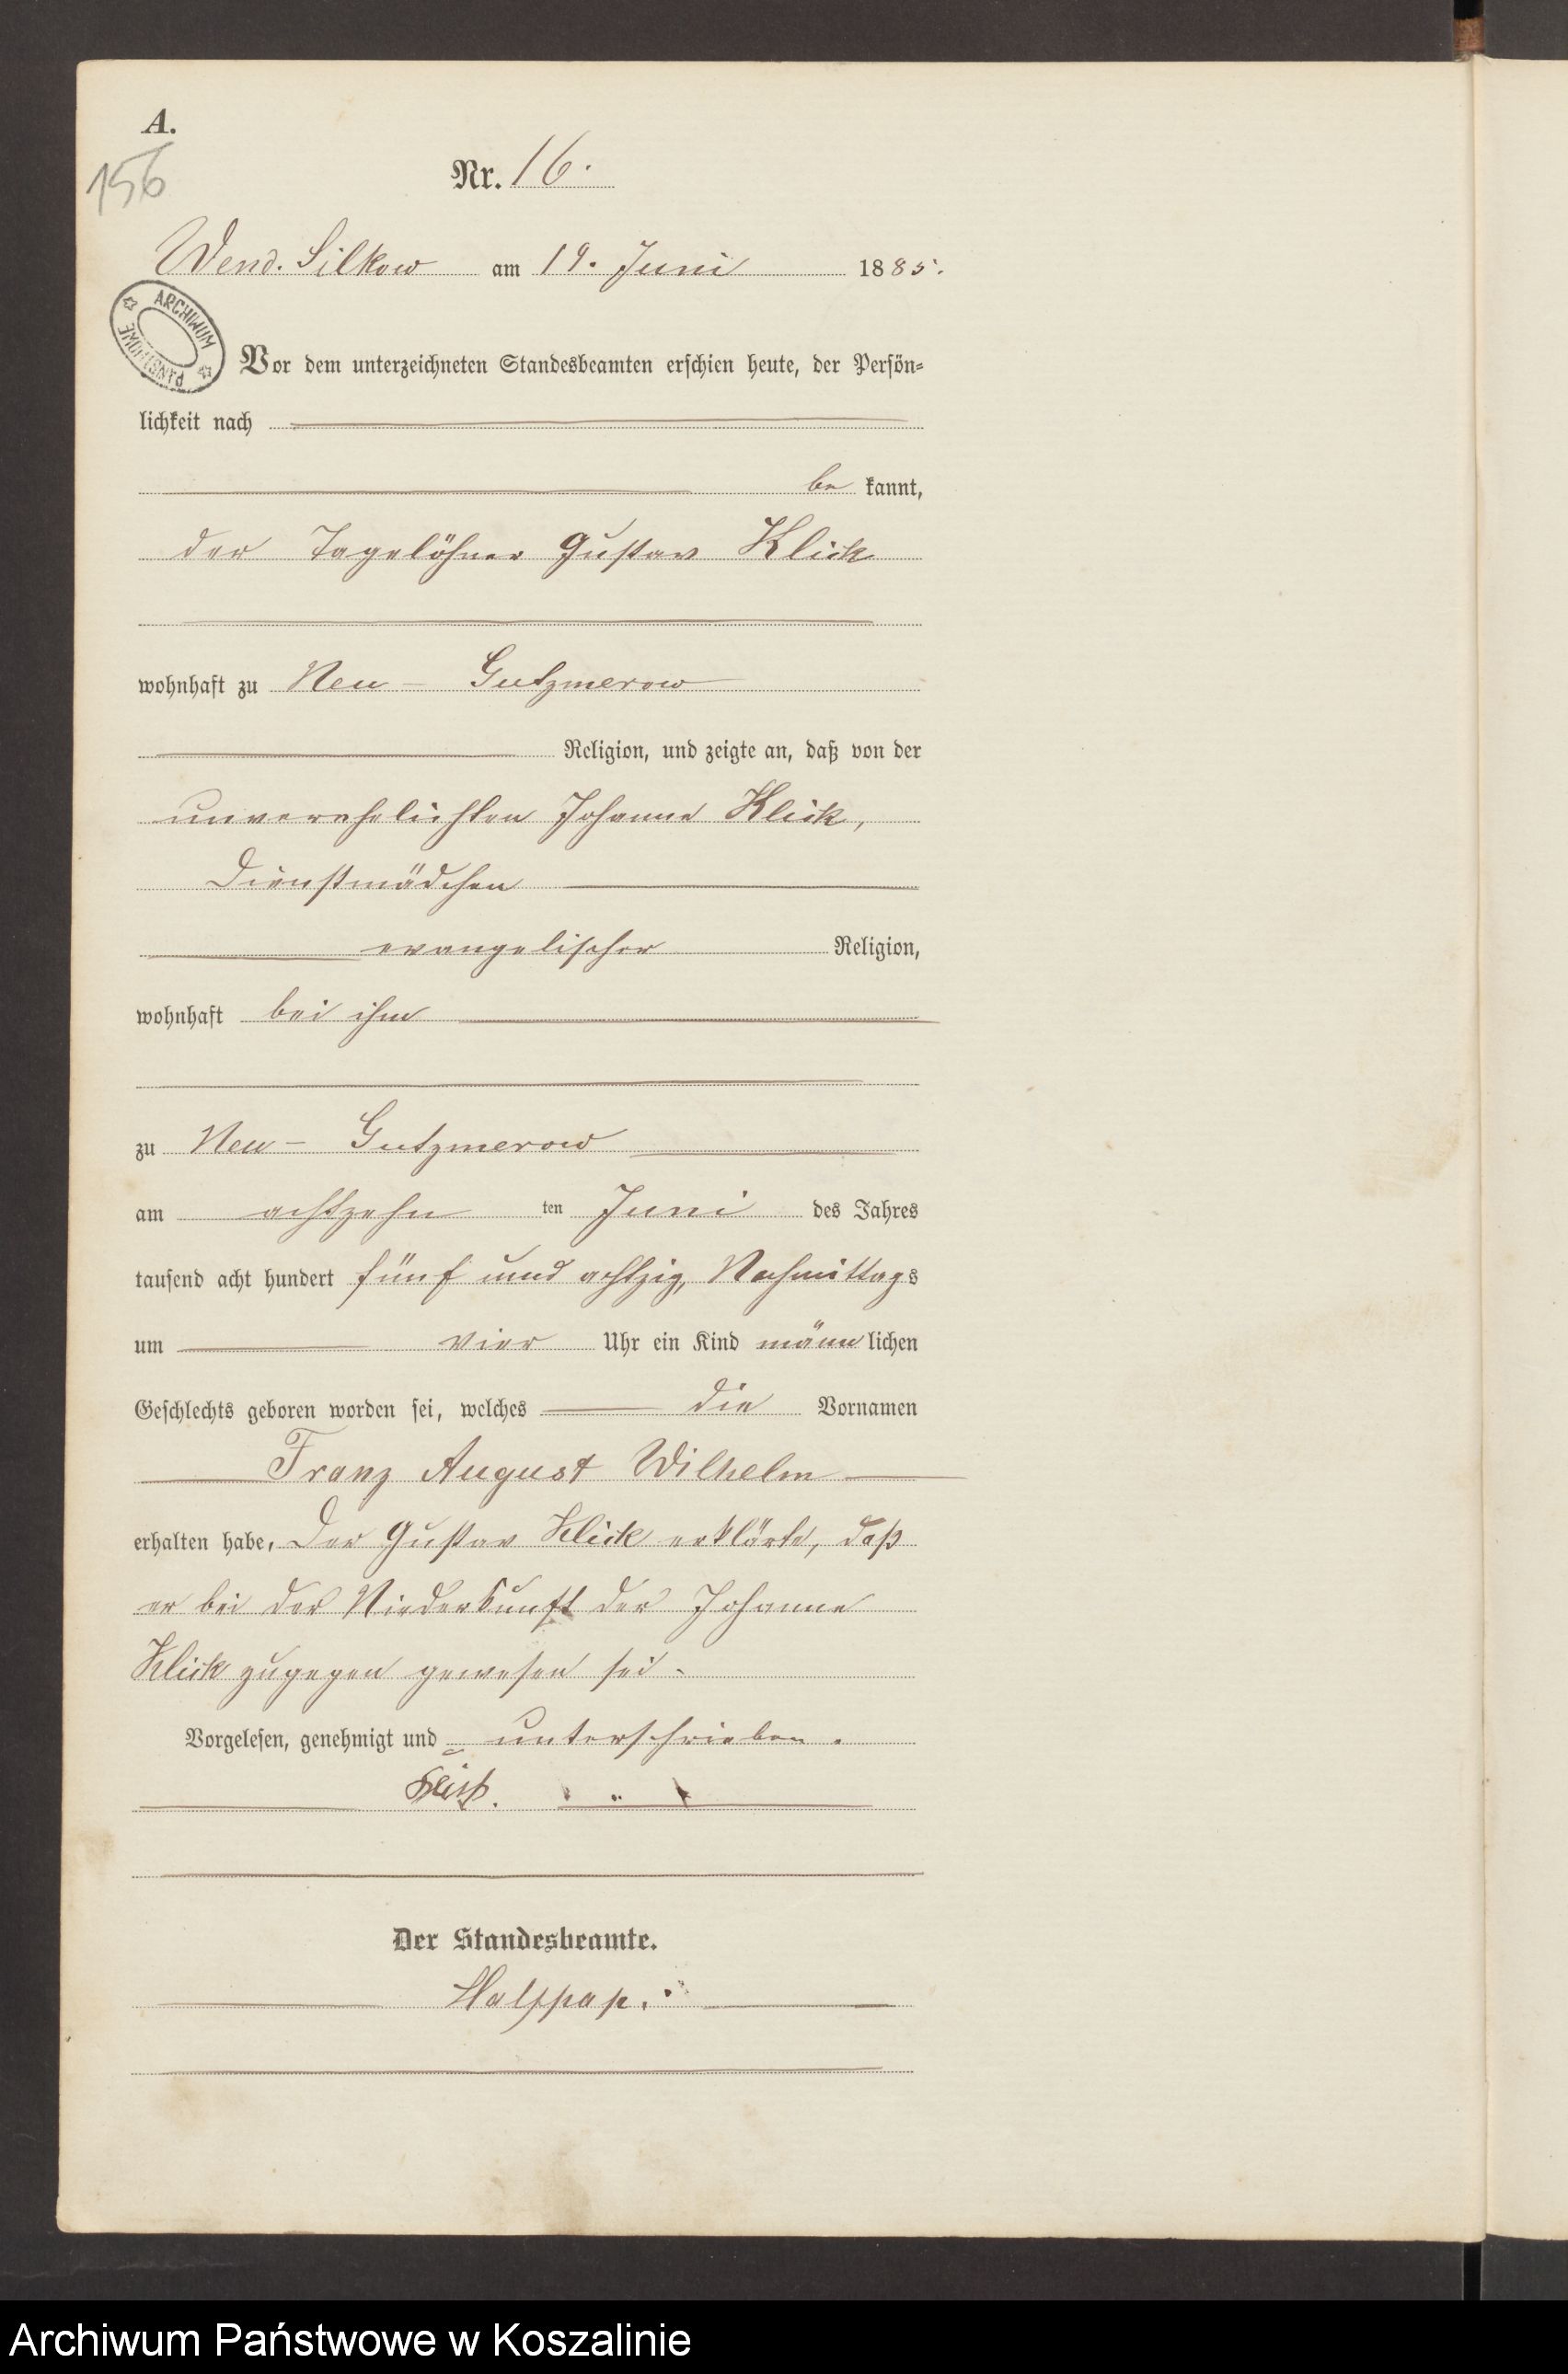 A.
156
Nr. 16.
Wend. Silkow am 19. Juni 1885.
ARCHIWUM PAŃSTWOWE
Vor dem unterzeichneten Standesbeamten erschien heute, der Persön-
lichkeit nach
be kannt,
der Tagelöhner Gustav Klick
wohnhaft zu Neu-Gutzmerow
Religion, und zeigte an, daß von der
unverehelichten Johanne Klick,
Dienstmädchen
evangelischer Religion,
wohnhaft bei ihm
zu Neu-Gutzmerow
am achtzehn ten Juni des Jahres
tausend acht hundert fünf und achtzig, Nachmittags
um vier Uhr ein Kind männlichen
Geschlechts geboren worden sei, welches die Vornamen
Franz August Wilhelm
erhalten habe. Der Gustav Klick erklärte, daß
er bei der Niederkunft der Johanne
Klick zugegen gewesen sei.
Vorgelesen, genehmigt und unterschrieben.
Der Standesbeamte.
Archiwum Państwowe w Koszalinie